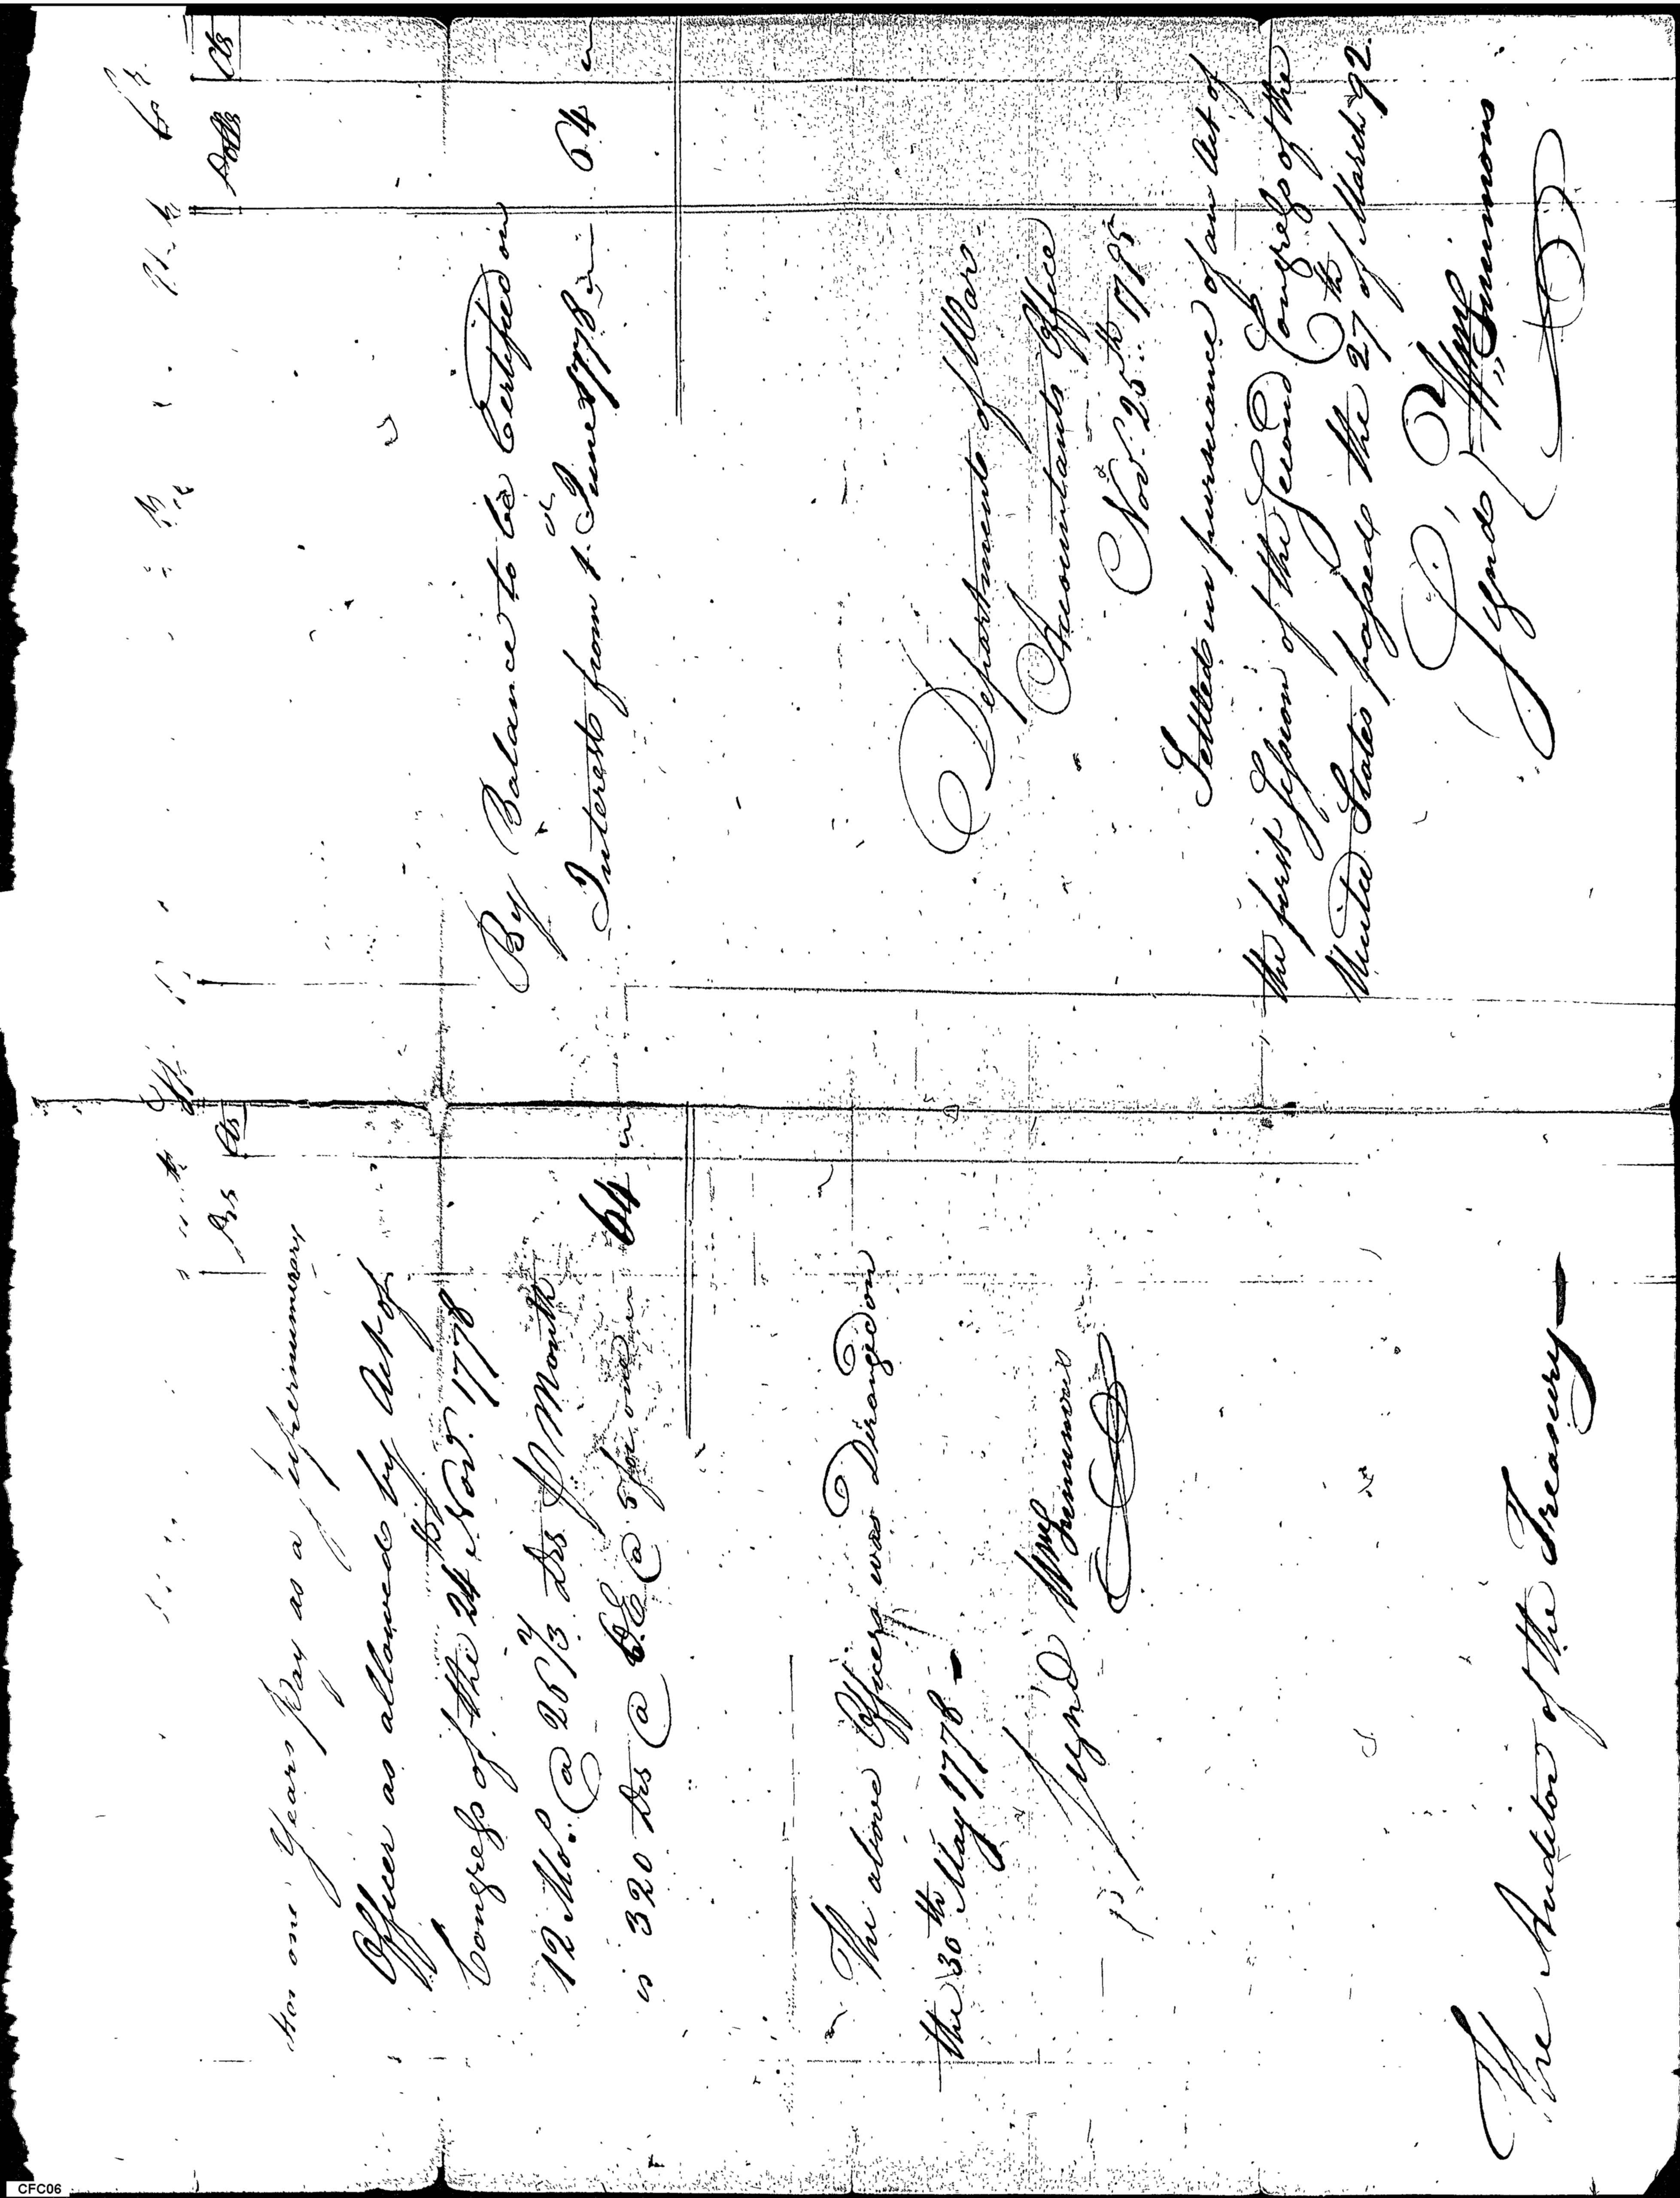 Drs Cts
For one Years Pay as a Supernumerary
Officer as allowed by Act of
Congress of the 24th Novr. 1778
12 Mos. @ 26 2/3 Drs P Month
is 320 Drs @ @ 5 for one 64 "
The above Officer was Deranged on
the 30th May 1778 -
Signd Wm Simmons
The Auditor of the Treasury—
Cr
Dolls Cts
By Balance to be Certified on
Interest from 1st June 1778 64 "
Department of War
Accountants Office
Novr. 25th 1795
Settled in pursuance of an Act of
the first Session of the Second Congress of the
United States passed the 27th of March 92.
Signd Wm Simmons
CFC06